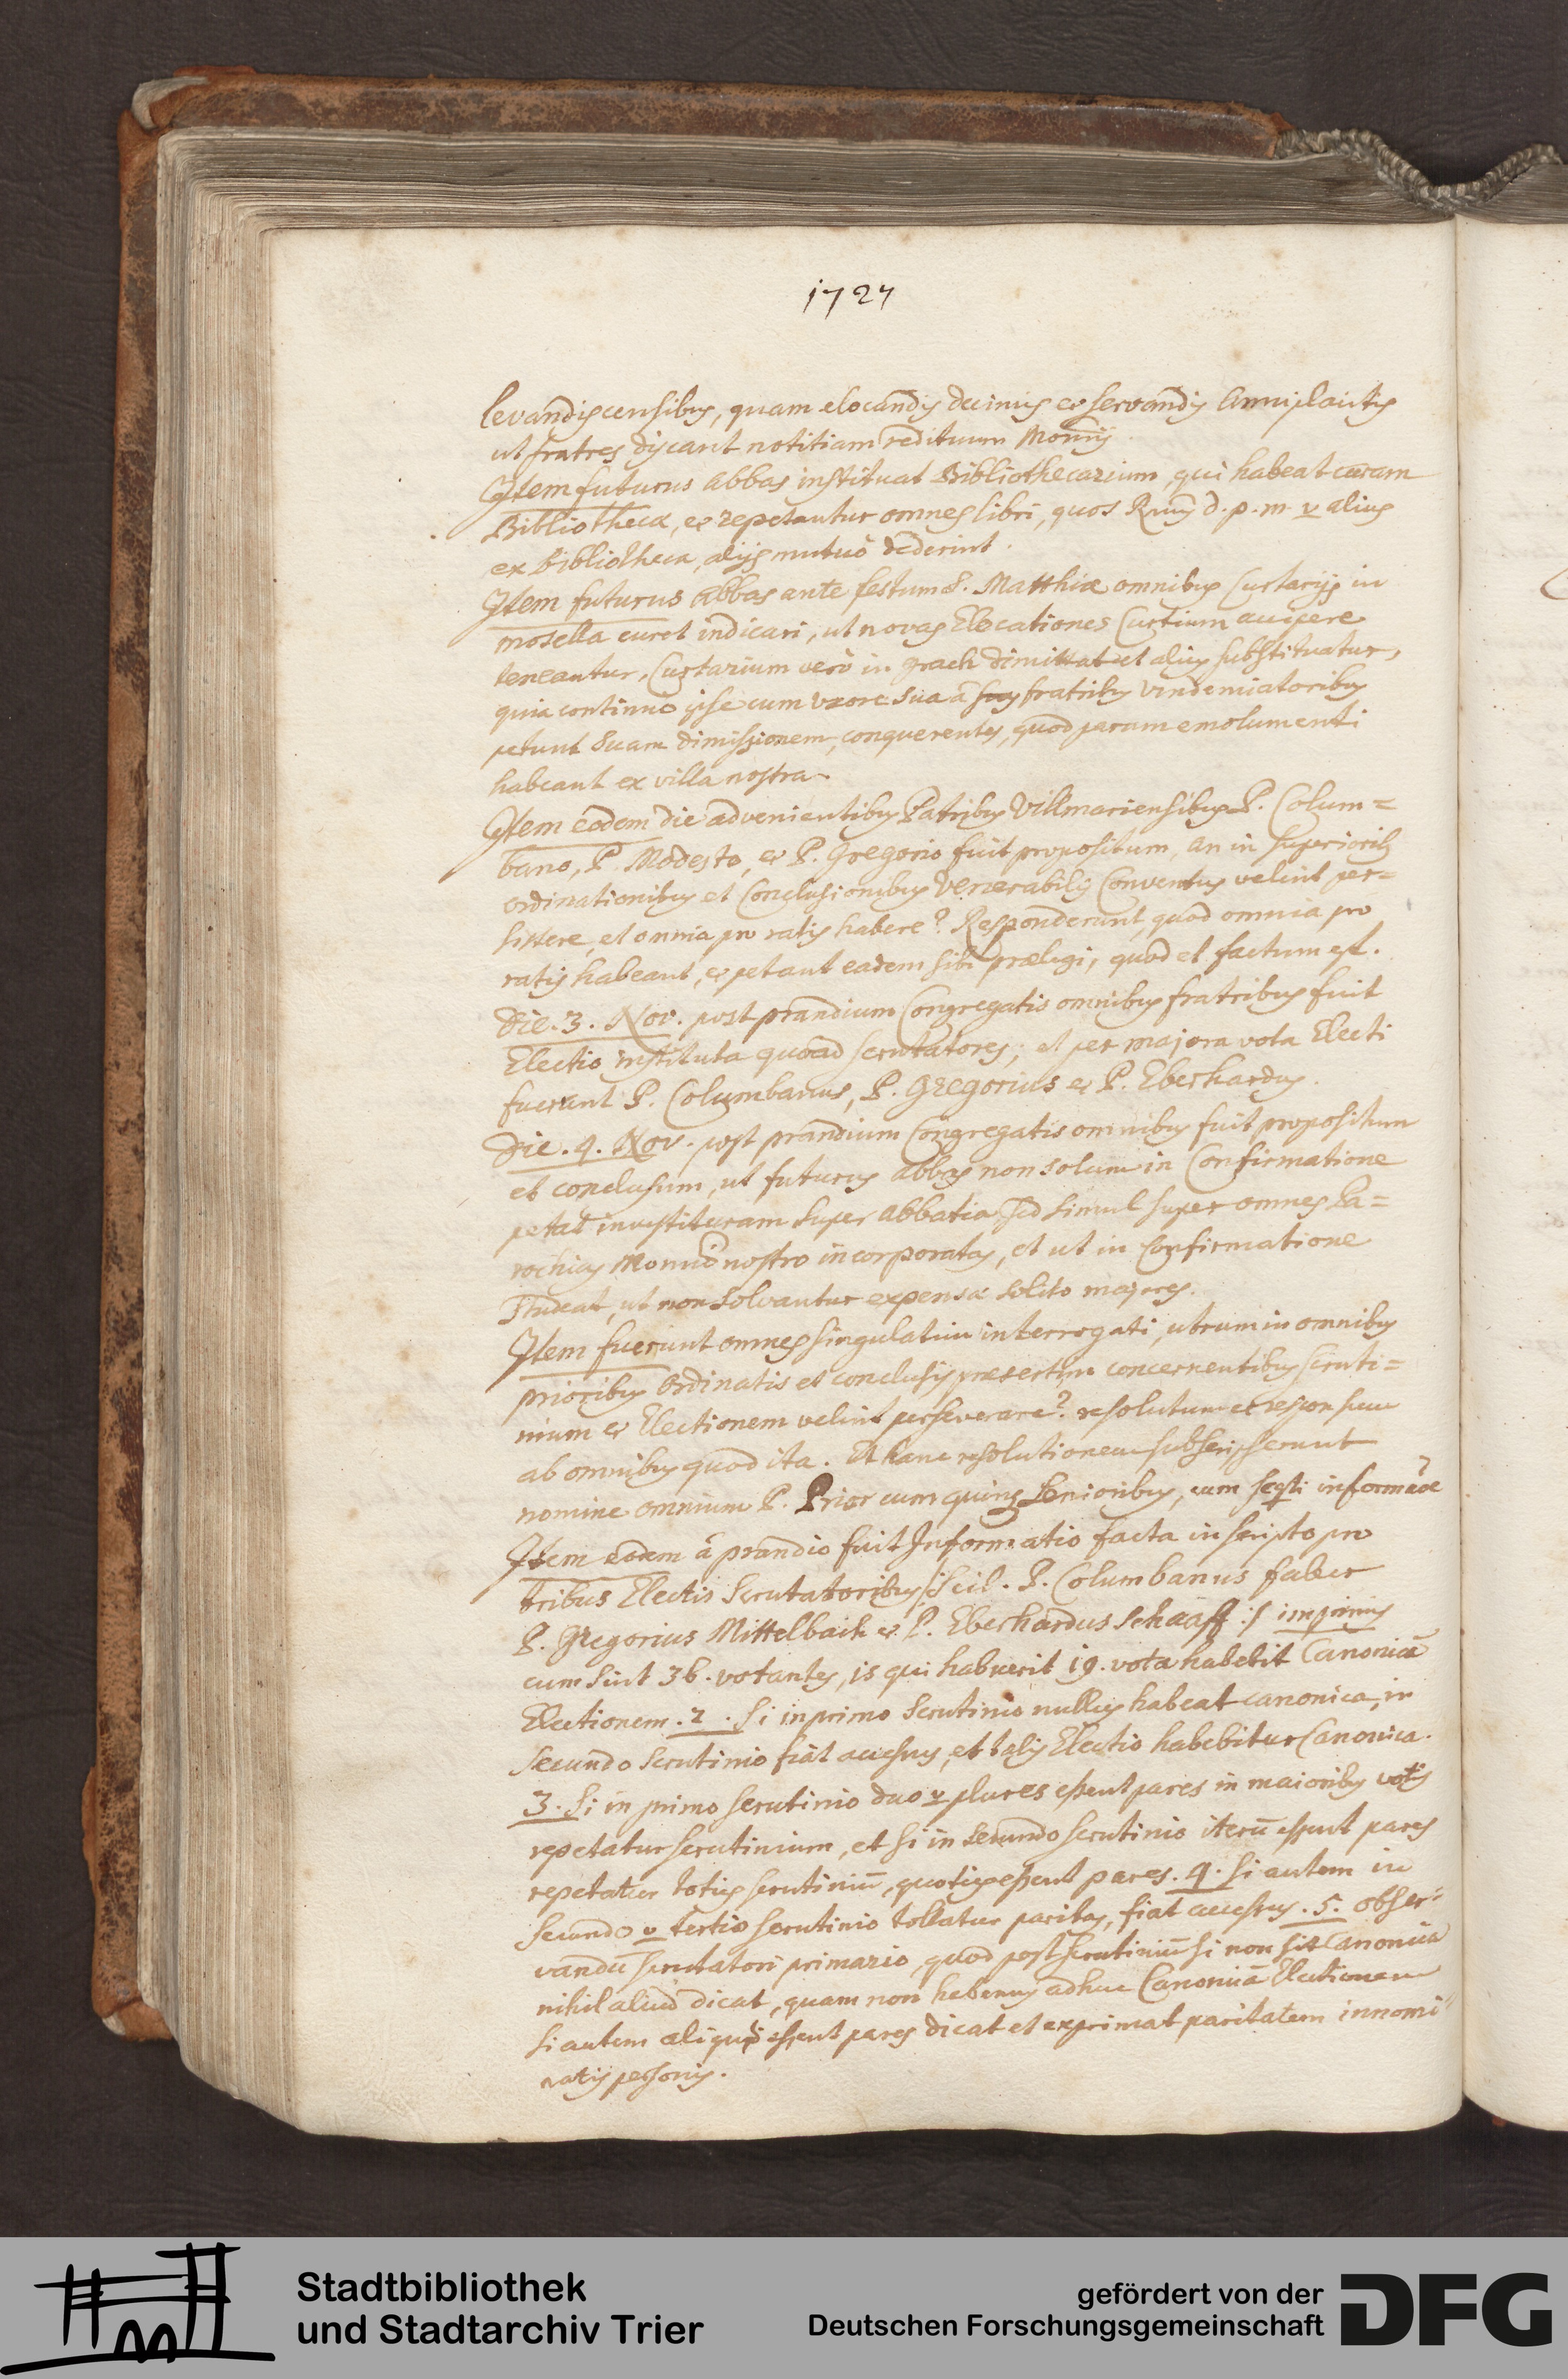 1727
levandis censibus, quam elocandis decimis et servandis Anniplacitis
ut fratres discant notitiam redituum Monrij
Item futurus Abbas instituat Bibliothecarium, qui habeat curam
Bibliothecæ, et repetantur omnes libri, quos Rmus d. p. m. vel alius
ex bibliotheca, alijs mutuò dederint.
Item futurus Abbas ante festum S. Matthiæ omnibus Curtarijs in
mosella curet indicari, ut novas Elocationes Curtium accipere
teneantur, Curtarium verò in grach dimittat et alius substituatur,
quia continuo ipse cum uxore sua à fratribus vindemiatoribus
petunt suam dimissionem, conquerentes, quod parum emolumenti
habeant ex villa nostra.
Item eodem die advenientibus Patribus Villmariensibus P. Colum=
bano, P. Modesto, et P. Gregorio fuit propositum, an in superioribus
ordinationibus et Conclusionibus Venerabilis Conventus velint per=
sistere, et omnia pro ratis habere? Responderunt, quod omnia pro
ratis habeant, et petant eadem sibi prælegi, quod et factum est.
Die. 3. Nov. post prandium Congregatis omnibus fratribus fuit
Electio instituta quoad scrutatores; et per majora vota Electi
fuerunt P. Columbanus, P. Gregorius et P. Eberhardus.
Die. 4. Nov. post prandium Congregatis omnibus fuit propositum
et conclusum, ut futurus abbas non solum in Confirmatione
petat investituram super abbatia sed simul super omnes Pa=
rochias Monrio nostro incorporatas, et ut in Confirmatione
studeat, ut non solvantur expensæ solito majores.
Item fuerunt omnes singulatim interrogati, utrum in omnibus
prioribus ordinatis et conclusis præsertim concernentibus scruti=
nium et Electionem velint perseverare? resolutum et responsum
ab omnibus quod ita. Et hanc resolutionem subscripserunt
nomine omnium P. Prior cum quinque Senioribus, cum seqti informaoe
Item eodem à prandio fuit Informatio facta in scripto pro
tribus Electis Scrutatoribus /: Scil. P. Columbanus faber
P. Gregorius Mittelbach et P. Eberhardus Schaaff :/ imprimis
cum sint 36. votantes, is qui habuerit 19. vota habebit Canonicā
Electionem. 2. Si in primo Scrutinio nullus habeat canonica, in
secundo Scrutinio fiat accessus, et talis Electio habebitur Canonica.
3. Si in primo scrutinio duo vel plures essent pares in maioribus votis
repetatur scrutinium, et si in secundo scrutinio iterū essent pares
repetatur toties scrutiniū, quoties essent pares. 4. Si autem in
secundo vel tertio scrutinio tollatur paritas, fiat accessus. 5. obser=
vandū scrutatori primario, quod post scrutiniū si non sit Canonica
nihil aliud dicat, quam non habemus adhuc Canonicā Electionem
Si autem aliqui essent pares dicat et exprimat paritatem innomi=
natis personis.
Stadtbibliothek
und Stadtarchiv Trier
gefördert von der
Deutschen Forschungsgemeinschaft
DFG